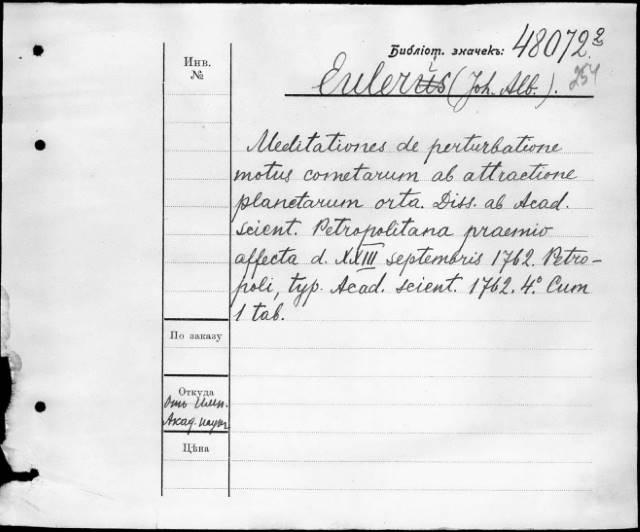 Библіот. значекъ: 48072²
Инв.
№
Euler (Joh. Alb.). 254
Meditationes de perturbatione
motus cometarum ab attractione
planetarum orta. Diss. ab Acad.
scient. Petropolitana praemio
affecta d. XXIII septembris 1762. Petro-
poli, typ. Acad. scient. 1762. 4°. Cum
1 tab.
По заказу
Откуда
Отъ Имп.
Акад. наукъ
Цѣна